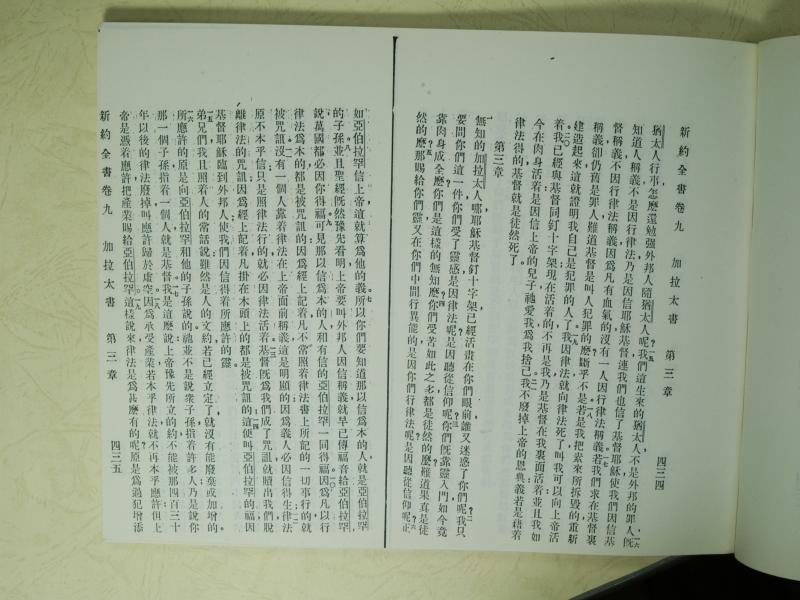 新約全書卷九 加拉太書 第三章 四三四
猶太人行事、怎麼還勉強外邦人隨猶太人呢。我們這生來的猶太人、不是外邦的罪人、旣
知道人稱義、不是因行律法、乃是因信耶穌基督、連我們也信了基督耶穌、使我們因信基
督稱義、不因行律法稱義、因爲凡有血氣的、沒有一人因行律法稱義。若我們求在基督裏
稱義、卻仍舊是罪人、難道基督是叫人犯罪的麼、斷乎不是。若是我把素來所拆毀的重新
建造起來、這就證明我自己是犯罪的人了。我因律法就向律法死了、叫我可以向上帝活
着。我已經與基督同釘十字架、現在活着的、不再是我、乃是基督在我裏面活着、並且我如
今在肉身活着、是因信上帝的兒子、祂愛我、爲我捨己。我不廢掉上帝的恩典、義若是藉着
律法得的、基督就是徒然死了。
第三章
無知的加拉太人哪、耶穌基督釘十字架、已經活畫在你們眼前、誰又迷惑了你們呢。我只
要問你們這一件、你們受了靈、是因律法呢、是因聽從信仰呢。你們旣靠靈入門、如今竟
靠肉身成全麼、你們是這樣的無知麼。你們受苦如此之多、都是徒然的麼、難道果眞是徒
然的麼。那賜給你們靈、又在你們中間行異能的、是因你們行律法呢、是因聽從信仰呢。正
如亞伯拉罕信上帝、這就算爲他的義。所以你們要知道那以信爲本的人、就是亞伯拉罕
的子孫。並且聖經旣然豫先看明、上帝要叫外邦人因信稱義、就早已傳福音給亞伯拉罕
說、萬國都必因你得福。可見那以信爲本的人、和有信的亞伯拉罕一同得福。因爲凡以行
律法爲本的、都是被咒詛的、因爲經上記着、凡不常照着律法書上所記的一切事行的、就
被咒詛。沒有一個人靠着律法在上帝面前稱義、這是明顯的、因爲義人必因信得生。律法
原不本乎信、只是照律法行的就必因律法活着。基督旣爲我們成了咒詛、就贖出我們脫
離律法的咒詛、因爲經上記着、凡掛在木頭上的、都是被咒詛的。這便叫亞伯拉罕的福、因
基督耶穌臨到外邦人、使我們因信得着所應許的靈。
弟兄們、我且照着人的常話說、雖然是人的文約、若已經立定了、就沒有能廢棄或加增的。
所應許的、原是向亞伯拉罕和他的子孫說的、祂並不是說衆子孫、指着許多人、乃是說你
那一個子孫、指着一個人、就是基督。我是這麼說、上帝豫先所立的約、不能被那四百三十
年以後的律法廢掉、叫應許歸於虛空。因爲承受產業、若本乎律法、就不再本乎應許、但上
帝是憑着應許、把產業賜給亞伯拉罕。這樣說來、律法是爲甚麼有的呢、原是爲過犯增添
新約全書卷九 加拉太書 第三章 四三五